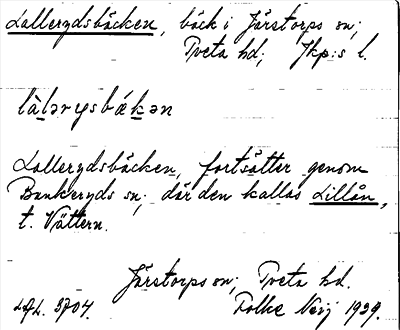 Lallerydsbäcken, bäck i Järstorps sn;
Tveta hd; Jkp:s l.
làlərysbǽkən
Lallerydsbäcken, fortsätter genom
Bankeryds sn; där den kallas Lillån,
t. Vättern.
Järstorps sn; Tveta hd.
3704. Folke 1939.